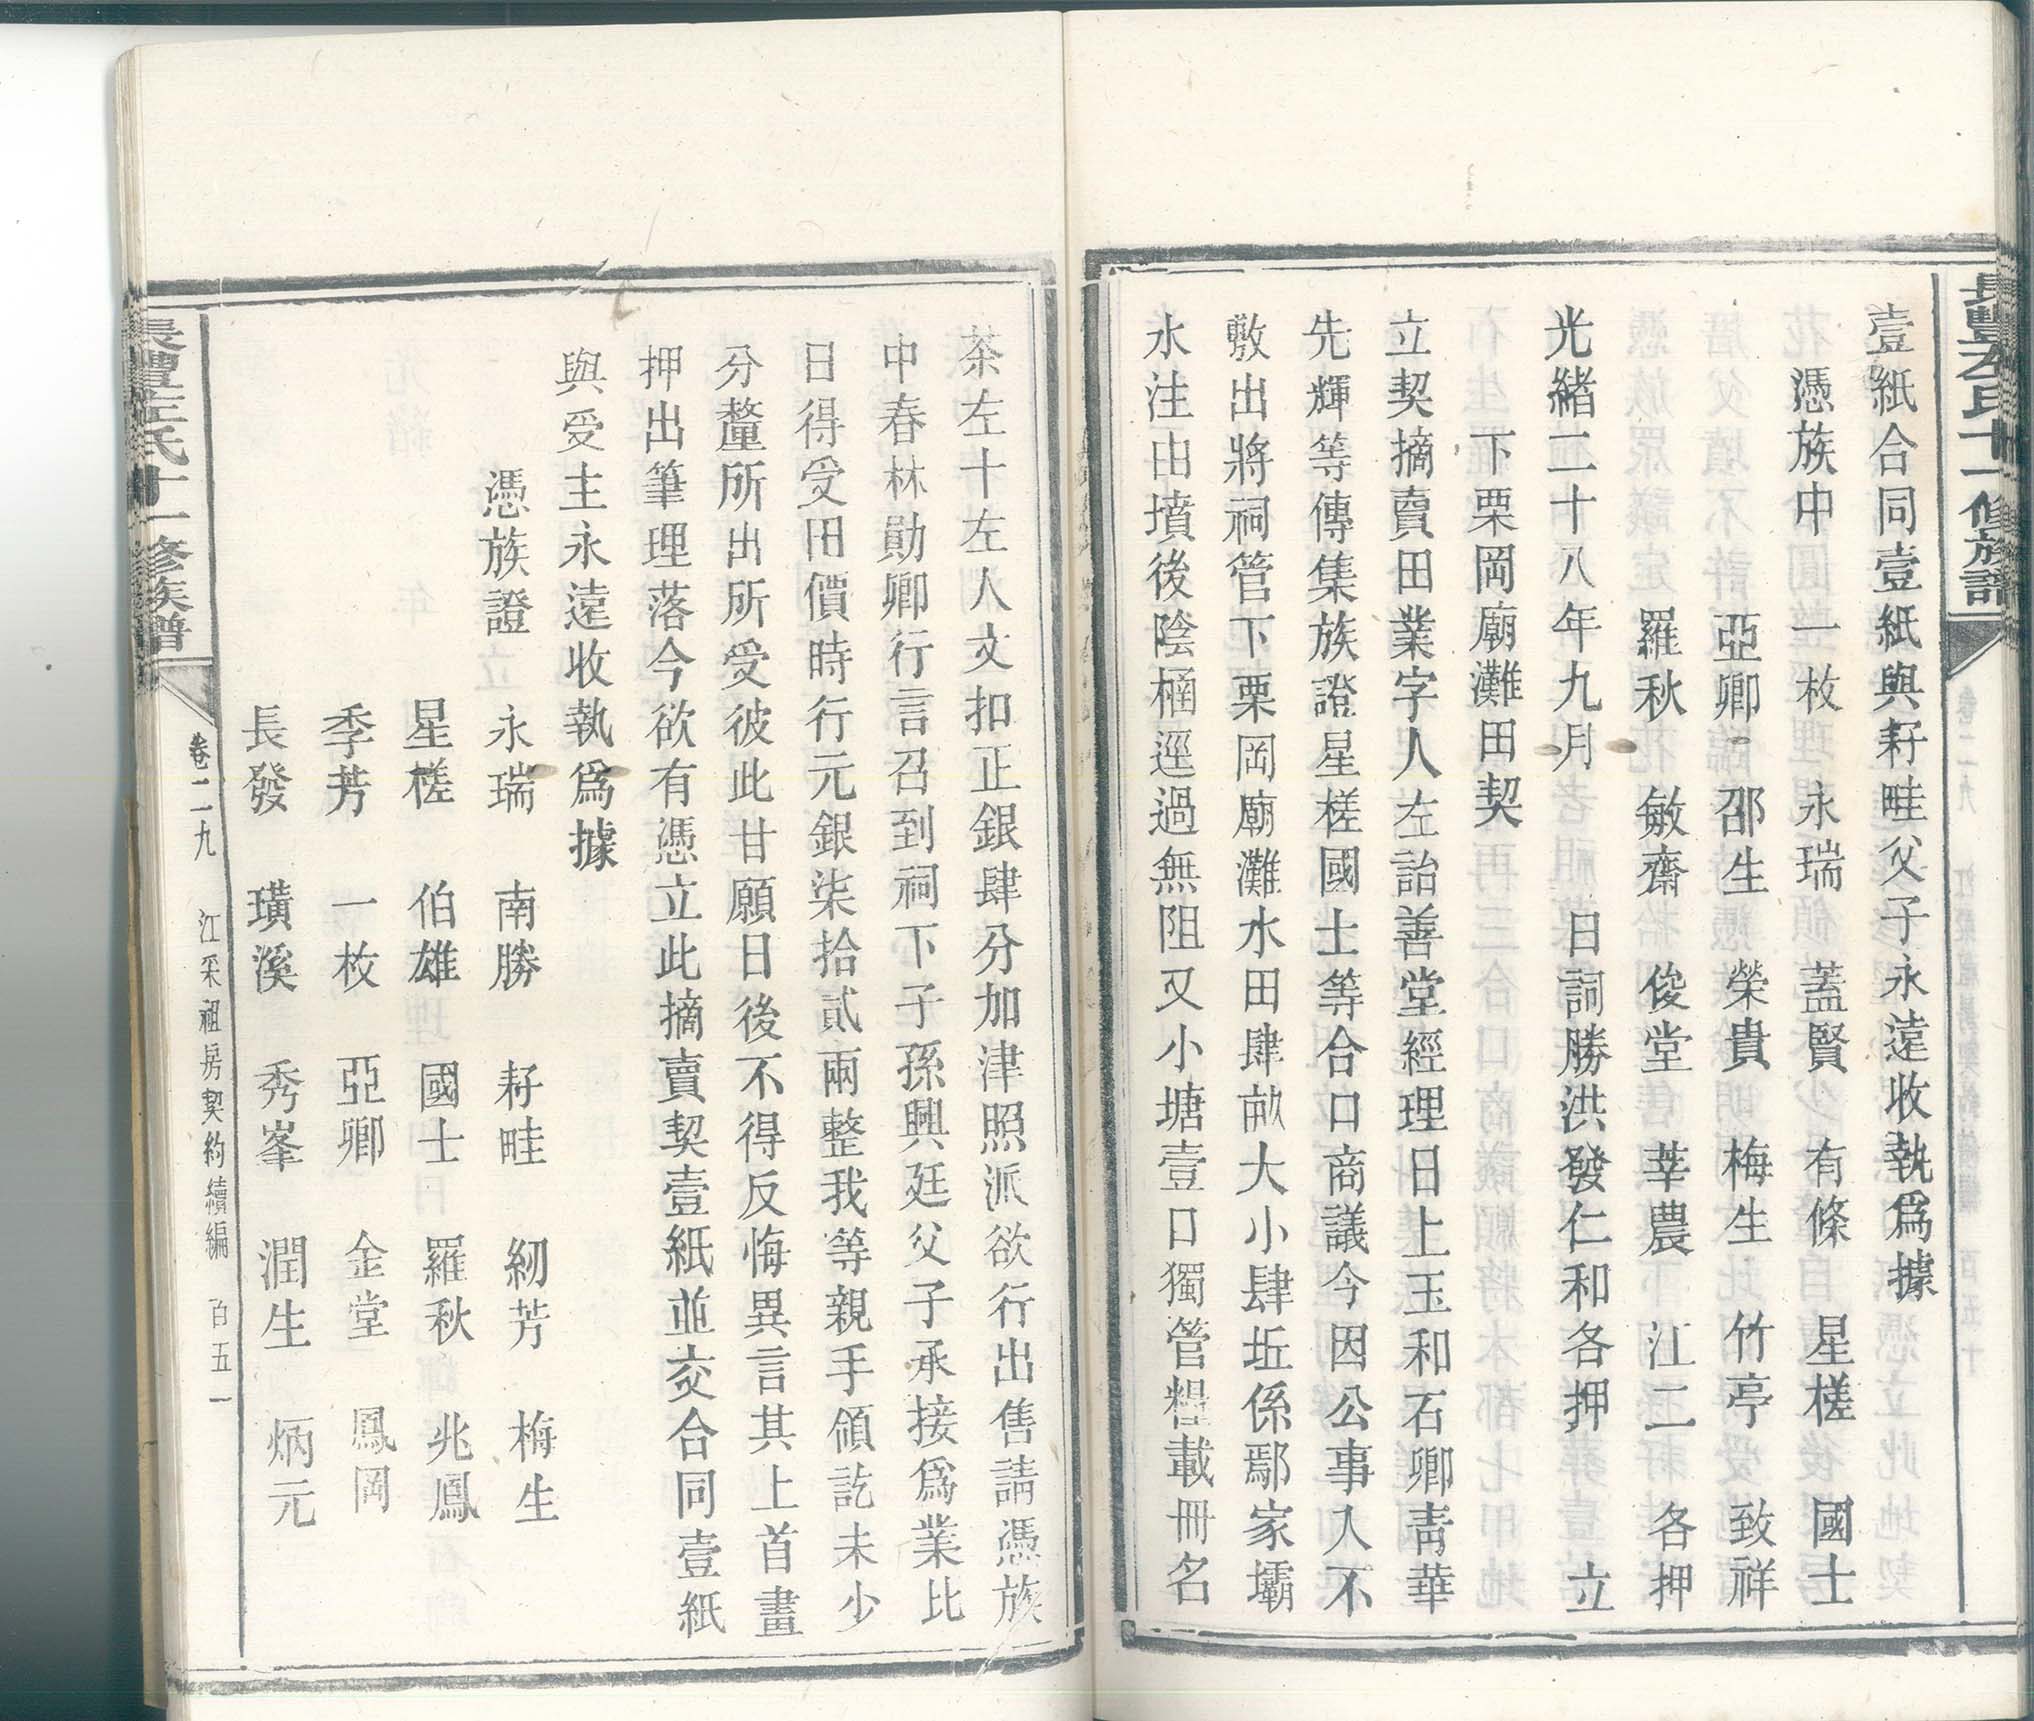 長豐左氏十一修族譜
壹紙合同壹紙與耔畦父子永遠收執爲據
憑族中　一枚　永瑞　蓋賢　有條　星槎　國士
亞卿　邵生　榮貴　梅生　竹亭　致祥
羅秋　敏齋　俊堂　莘農　江二　各押
光緒二十八年九月　日詞勝洪發仁和各押　立
下栗岡廟灘田契
立契摘賣田業字人左詒善堂經理日上玉和石卿靑華
先輝等傳集族證星槎國士等合口商議今因公事入不
敷出將祠管下栗岡廟灘水田肆畝大小肆坵係鄢家壩
水注由墳後陰桶逕過無阻又小塘壹口獨管糧載冊名
茶左十左人文扣正銀肆分加津照派欲行出售請憑族
中春林勛卿行言召到祠下子孫興廷父子承接爲業比
日得受田價時行元銀柒拾貳兩整我等親手領訖未少
分釐所出所受彼此甘願日後不得反悔異言其上首畫
押出筆理落今欲有憑立此摘賣契壹紙並交合同壹紙
與受主永遠收執爲據
憑族證　永瑞　南勝　耔畦　紉芳　梅生
星槎　伯雄　國士　羅秋　兆鳳
季芳　一枚　亞卿　金堂　鳳岡
長發　璜溪　秀峯　潤生　炳元
長豐左氏十一修族譜　卷二九　江采祖房契約續編　百五一